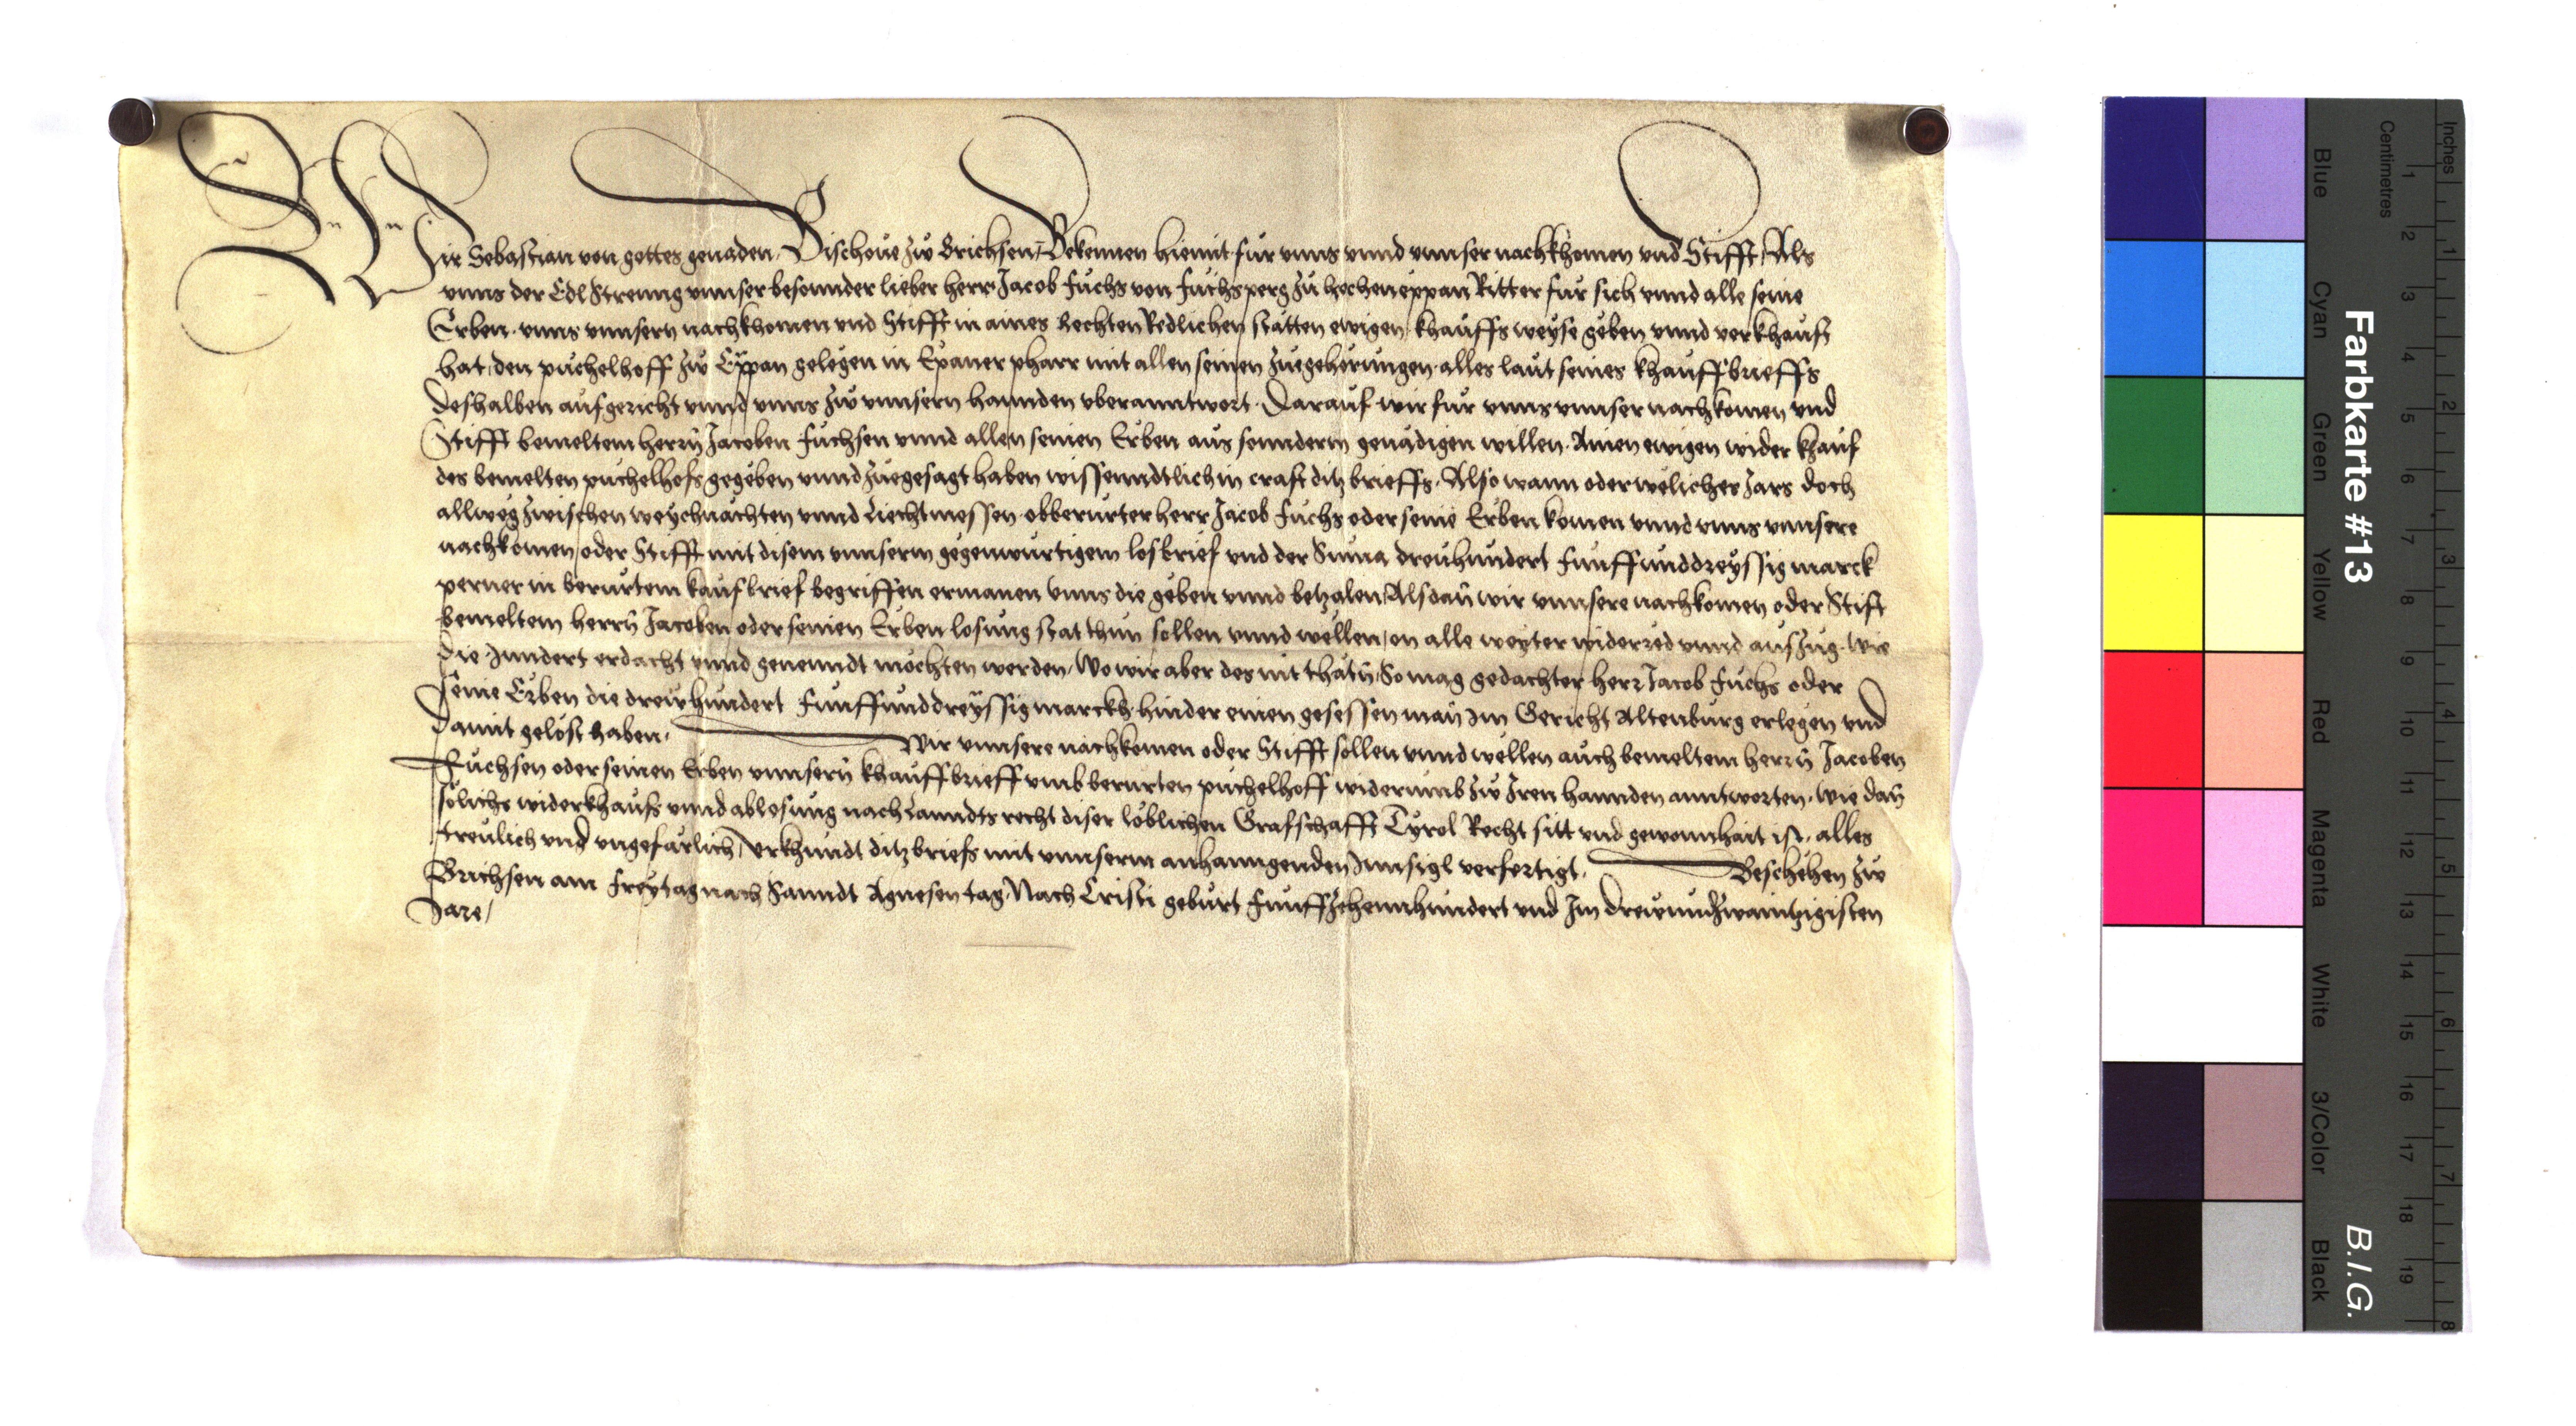 Wir Sebastian von gottes genaden, Bischoue zw Brichsen, Bekennen hiemit fur vnns vnnd vnnser nachkhomen vnd Stifft, Als
vnns der Edl Streng vnnser besonnder lieber herr Jacob Fuchs von Fuchsperg zu hochen eppan Ritter fur sich vnnd alle seine
Erben, vnns vnnsern nachkhomen vnd Stifft in aines Rechten Redlichen stätten ewigen khauffs weyse geben vnnd verkhaufft
hat, den puchelhoff zw Eppan gelegen in Epaner pharr mit allen seinen zuegeherungen, alles laut seines khauffbrieffs
deshalben aufgericht vnnd vnns zw vnnsern hannden vberanntwort. Darauf wir fur vnns vnnser nachkomen vnd
Stifft bemeltem herrn Jacoben Fuchsen vnnd allen seinen Erben aus sonnderm genädigen willen, Ainen ewigen wider khauf
des bemelten puchelhofs gegeben vnnd zuegesagt haben wissenndtlich in craft ditz brieffs, Also wann oder weliches Jars doch
allweg zwischen weychnächten vnnd Liechtmessen obberurter herr Jacob Fuchs oder seine Erben komen vnnd vnns vnnsere
nachkomen oder Stifft mit disem vnnserm gegenwurtigem losbrief vnd der Suma dreuhundert Funffunddreyssig marck
perner in berurtem kaufbrief begriffen ermanen vnns die geben vnnd betzalen, Alsdan wir vnnsere nachkomen oder Stift
bemeltem herrn Jacoben oder seinen Erben losung stat thun sollen vnnd wellen, on alle weyter widerred vnnd auszug, wie
die Jnndert erdacht vnnd genenndt mochten werden, Wo wir aber des nit thäten, So mag gedachter herr Jacob Fuchs oder
seine Erben die drewhundert Funffunddreyssig marckh hinder einen gesessen man Im Gericht Altenburg erlegen vnd
damit gelost haben, Wir vnnsere nachkomen oder Stifft sollen vnnd wellen auch bemeltem herrn Jacoben
Fuchsen oder seinen Erben vnnsern khauffbrieff vmb berurten puchelhoff widerumb zw Jren hannden anntworten, wie dan
solichs widerkhaufs vnnd ablosung nach Lanndts recht diser loblichen Grafschafft Tyrol Recht sitt vnd gewonnhait ist, alles
treulich vnd vngefärlich, Vrkhundt ditz briefs mit vnnserm anhanngenden Jnnsigl verfertigt, Beschehen zw
Brichsen am Freytag nach Sanndt Agnesen tag, Nach Cristi geburt Funffzehennhundert vnd Im drewundzwaintzigisten
Jare,
Farbkarte #13
B.I.G.
Blue Cyan Green Yellow Red Magenta White 3/Color Black
Centimetres
1 2 3 4 5 6 7 8 9 10 11 12 13 14 15 16 17 18 19
Inches
1 2 3 4 5 6 7 8